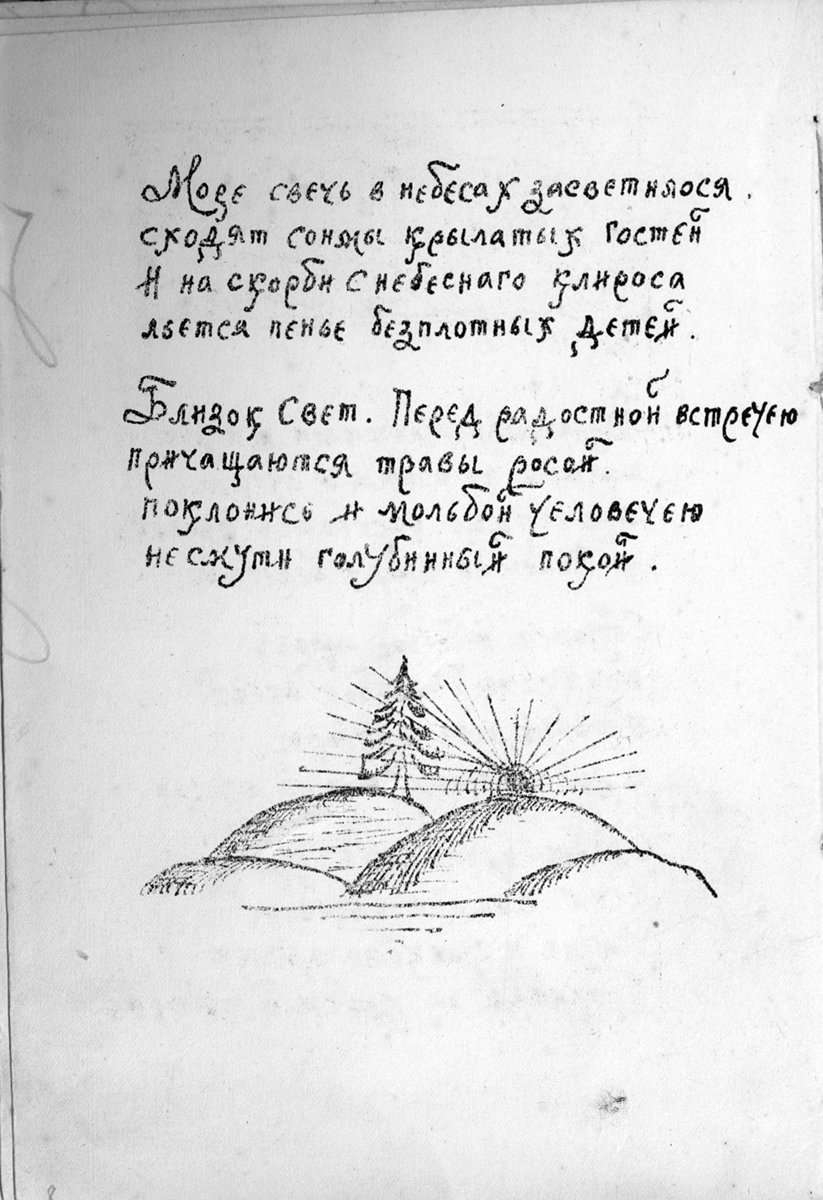 Море свечь в небесах засветилося.
сходят сонмы крылатых гостей
И на скорби с небеснаго клироса
льется пенье безплотных детей.
Близок Свет. Перед радостной встречею
причащаются травы росой.
поклонись и мольбой человечею
несмути голубинный покой.